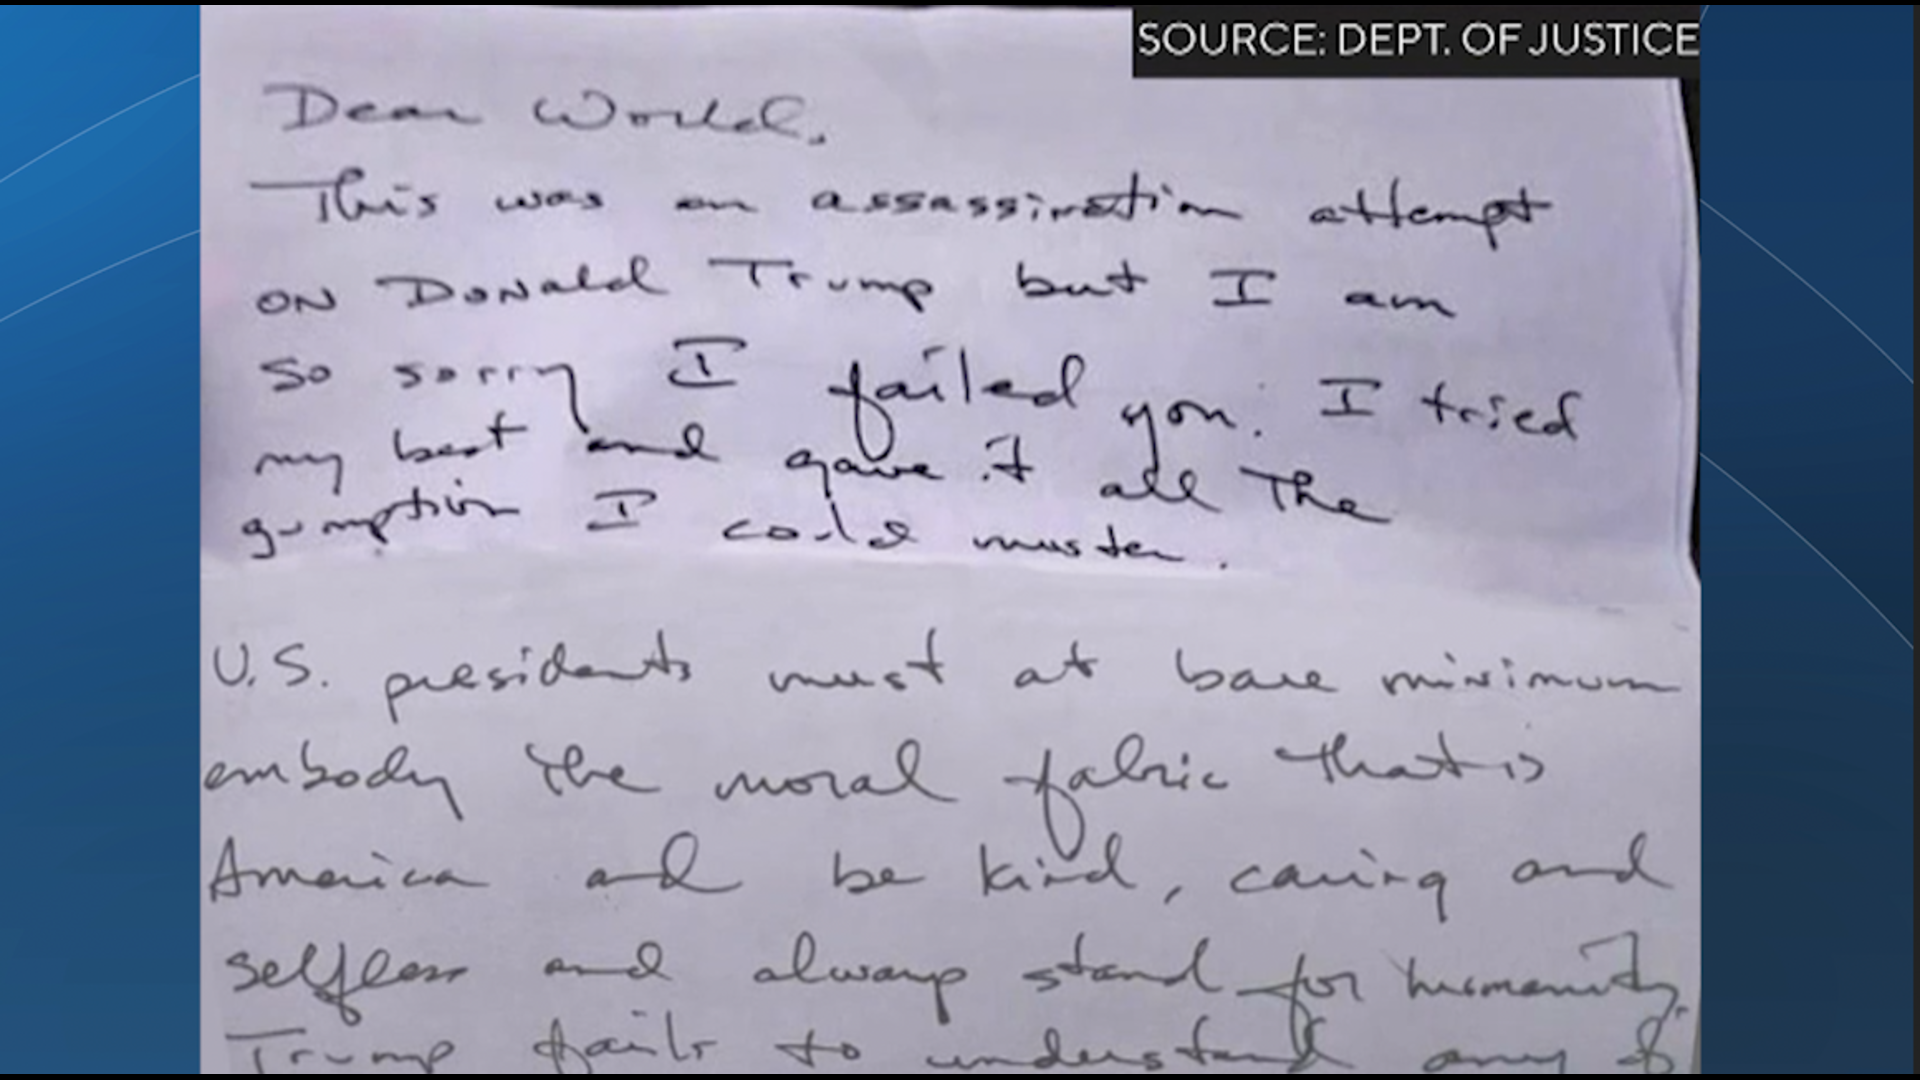 SOURCE: DEPT. OF JUSTICE
Dear World,
This was an assassination attempt
on Donald Trump but I am
so sorry I failed you. I tried
my best and gave it all the
gumption I could muster.
U.S. presidents must at bare minimum
embody the moral fabric that is
America and be kind, caring and
selfless and always stand for humanity.
Trump fails to understand any of